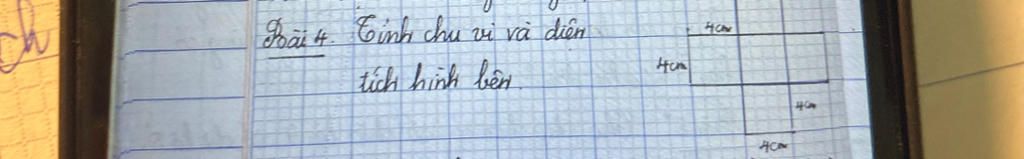 Bài 4. Tính chu vi và diện
tích hình bên.
4cm
4cm
4cm
4cm